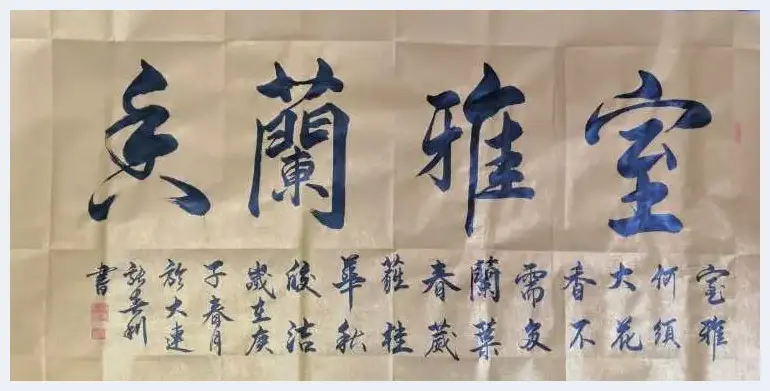 室雅蘭香
室雅
何須
大花
香不
需多
蘭葉
春葳
蕤桂
華秋
皎洁
歲在庚
子春月
於大連
書